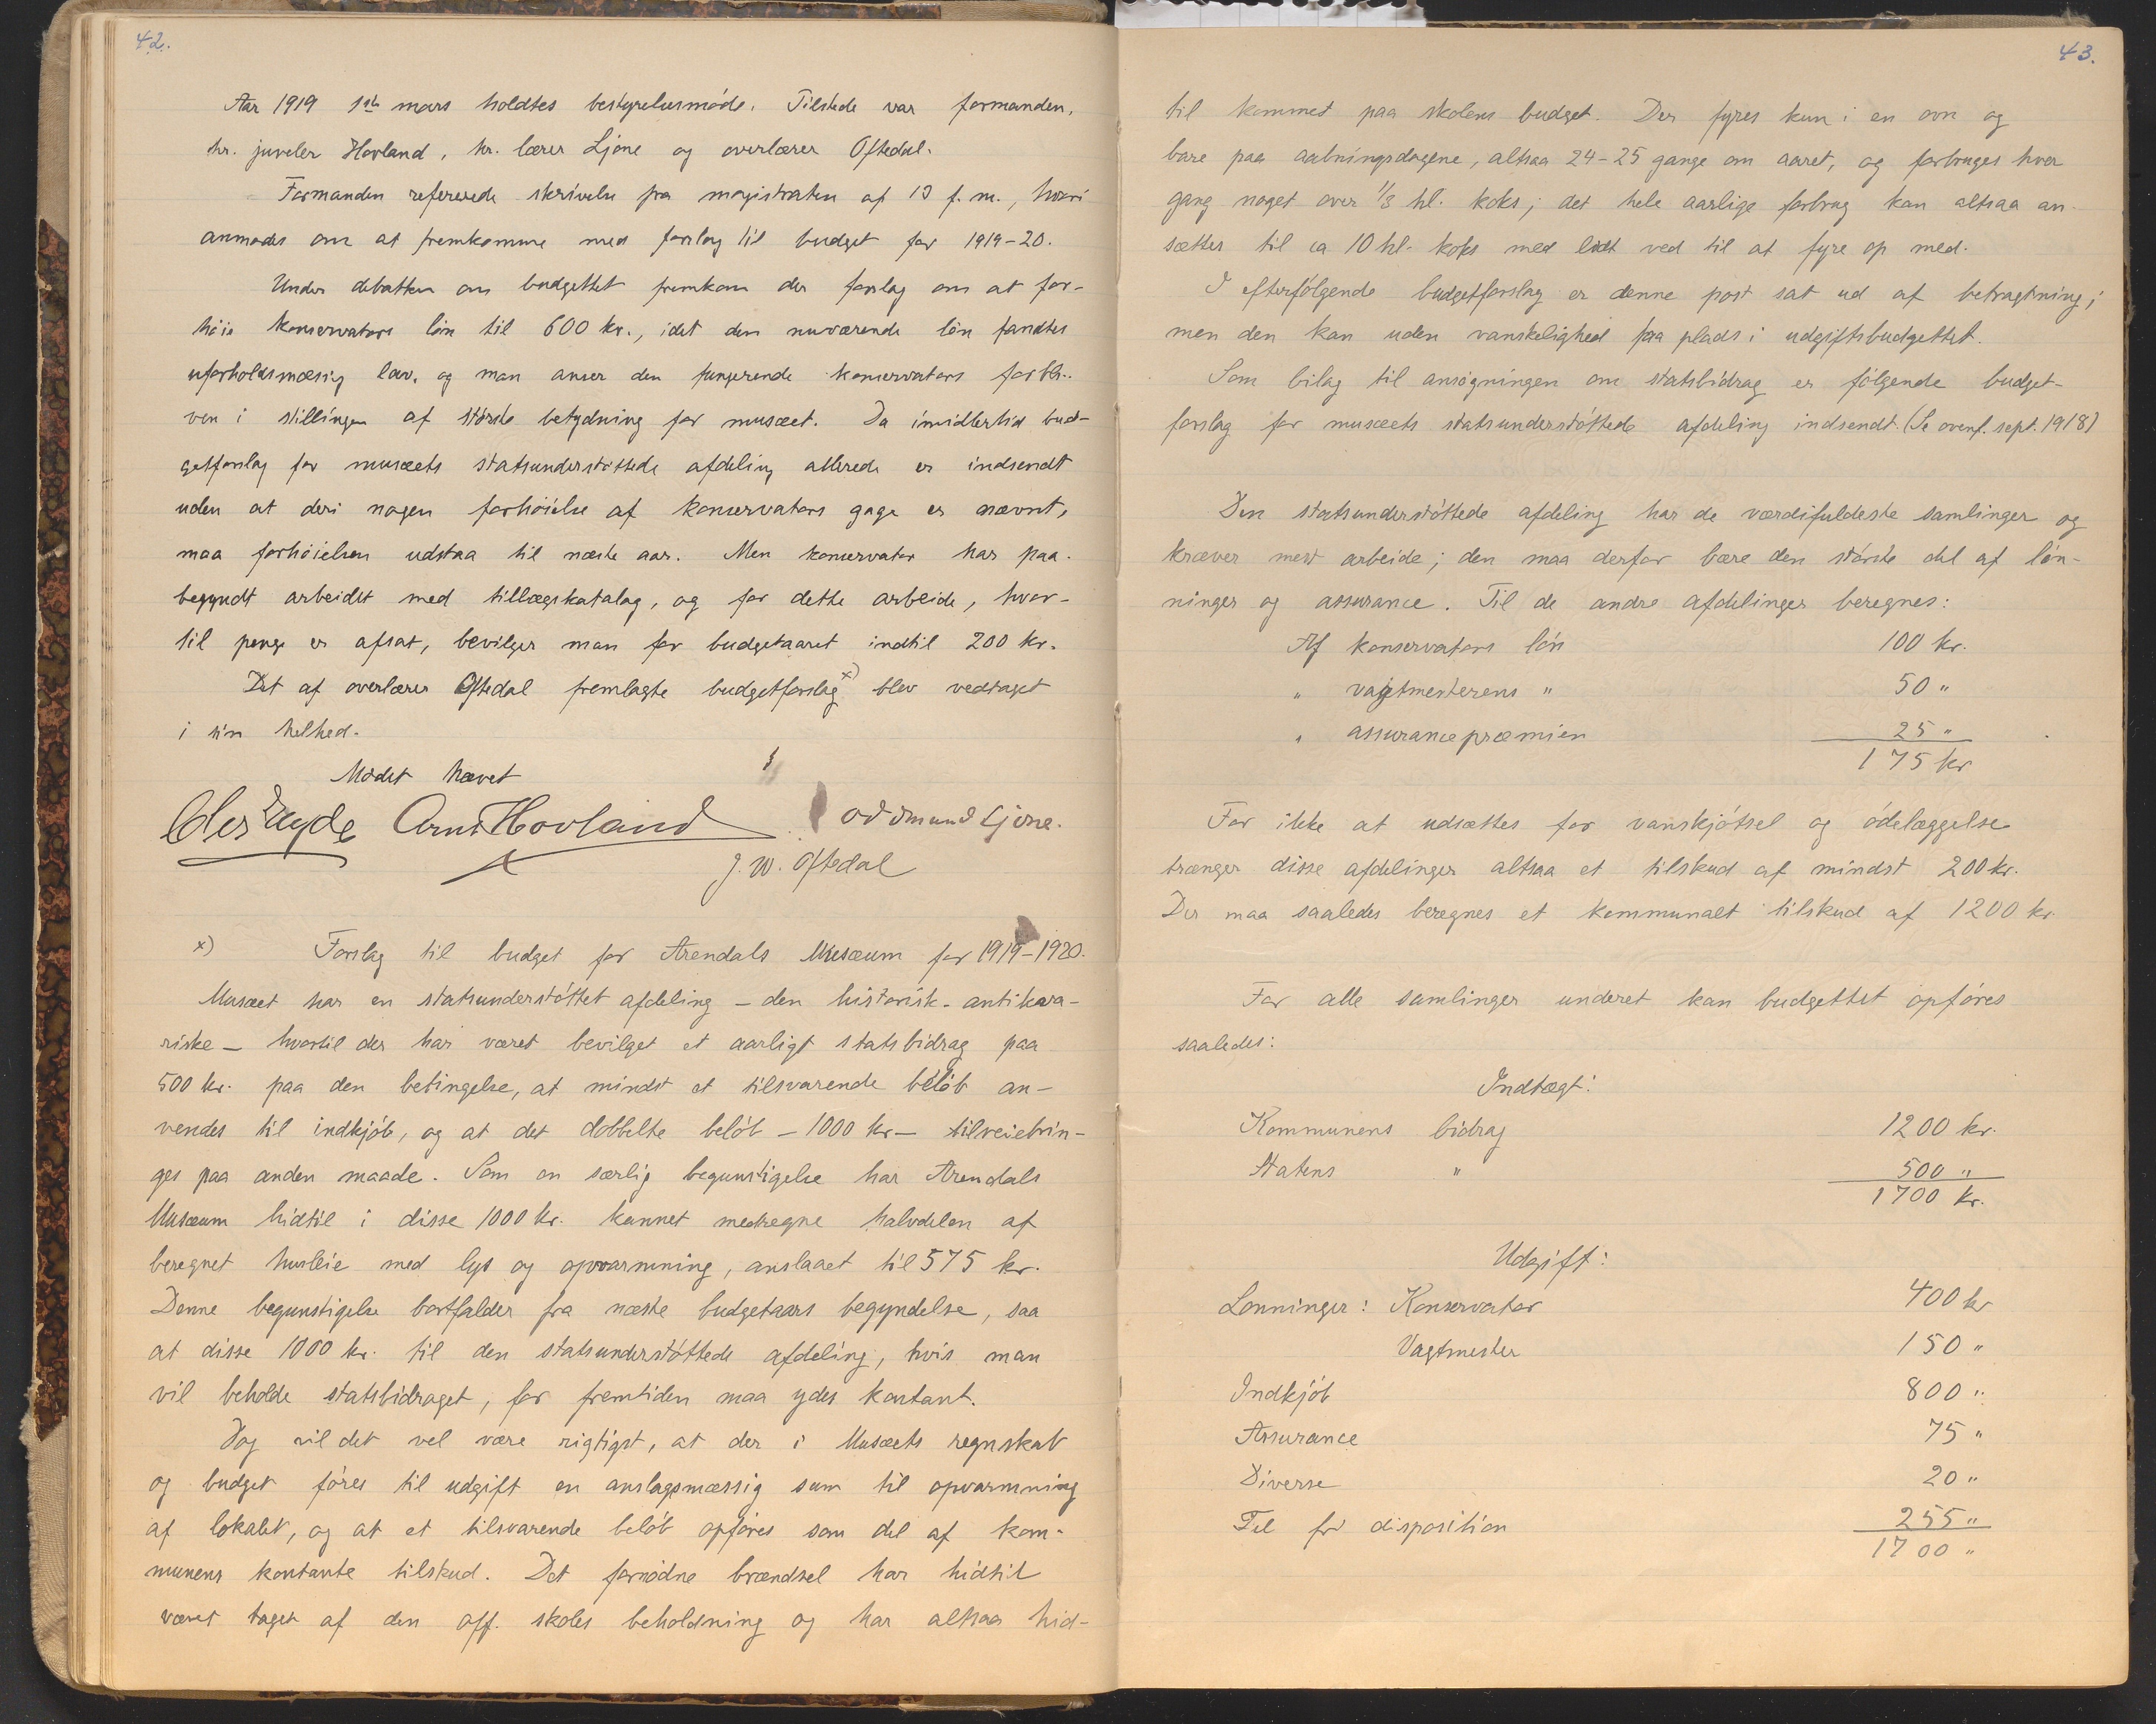 42.
Aar 1919 1ste mars holdtes bestyrelsesmøde. Tilstede var formanden,
hr. juveler Hovland, hr. lærer Ljone og overlærer Oftedal.
Formanden refererede skrivelse fra magistraten af 13 f. m., hvori
anmodes om at fremkomme med forslag til budget for 1919-20.
Under debatten om budgettet fremkom der forslag om at for-
høie konservators løn til 600 kr., idet den nuværende løn fandtes
uforholdsmæsig lav, og man anser den fungerende konservators forbli-
ven i stillingen af største betydning for musæet. Da imidlertid bud-
getforslag for musæets statsunderstøttede afdeling allerede er indsendt
uden at deri nogen forhøielse af konservators gage er nævnt,
maa forhøielsen udstaa til næste aar. Men konservator har paa-
begyndt arbeidet med tillægskatalog, og for dette arbeide, hvor-
til penge er afsat, bevilges man for budgetaaret indtil 200 kr.
Det af overlærer Oftedal fremlagte budgetforslag x) blev vedtaget
i sin helhed.
Mødet hævet
Arne Hovland Oddmund Ljone.
J. W. Oftedal
x) Forslag til budget for Arendals Musæum for 1919-1920.
Musæet har en statsunderstøttet afdeling - den historisk-antikva-
riske - hvortil der har været bevilget et aarligt statsbidrag paa
500 kr. paa den betingelse, at mindst et tilsvarende beløb an-
vendes til indkjøb, og at det dobbelte beløb - 1000 kr - tilveiebrin-
ges paa anden maade. Som en særlig begunstigelse har Arendals
Musæum hidtil i disse 1000 kr. kunnet medregne halvdelen af
beregnet husleie med lys og opvarmning, anslaaet til 575 kr.
Denne begunstigelse bortfalder fra næste budgetaars begyndelse, saa
at disse 1000 kr. til den statsunderstøttede afdeling, hvis man
vil beholde statsbidraget, for fremtiden maa ydes kontant.
Dog vil det vel være rigtigst, at der i Musæets regnskab
og budget føres til udgift en anslagsmæssig sum til opvarmning
af lokalet, og at et tilsvarende beløb opføres som del af kom-
munens kontante tilskud. Det fornødne brændsel har hidtil
været taget af den off. skoles beholdning og har altsaa hid-
43.
til kommet paa skolens budget. Der fyres kun i en ovn og
bare paa aabningsdagene, altsaa 24-25 gange om aaret, og forbruges hver
gang noget over 1/3 hl. koks; det hele aarlige forbrug kan altsaa an-
sættes til ca 10 hl. koks med lidt ved til at fyre op med.
I efterfølgende budgetforslag er denne post sat ud af betragtning;
men den kan uden vanskelighed faa plads i udgiftsbudgettet.
Som bilag til ansøgningen om statsbidrag er følgende budget-
forslag for musæets statsunderstøttede afdeling indsendt. (Se ovenf. sept. 1918)
Den statsunderstøttede afdeling har de værdifuldeste samlinger og
kræver mest arbeide; den maa derfor bære den største del af løn-
ninger og assurance. Til de andre afdelinger beregnes:
Af konservators løn 100 kr.
" vagtmesterens " 50 "
" assurancepræmien 25 "
175 kr
For ikke at udsættes for vanskjøtsel og ødelæggelse
trænger disse afdelinger altsaa et tilskud af mindst 200 kr.
Der maa saaledes beregnes et kommunalt tilskud af 1200 kr.
For alle samlinger underet kan budgettet opføres
saaledes:
Indtægt:
Kommunens bidrag 1200 kr.
Statens " 500 "
1700 kr.
Udgift:
Lønninger: Konservator 400 kr
Vagtmester 150 "
Indkjøb 800 "
Assurance 75 "
Diverse 20 "
Til fri disposition 255 "
1700 "